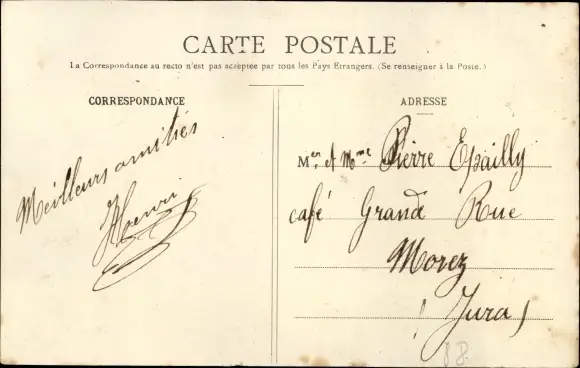 CARTE POSTALE
La Correspondance au recto n'est pas acceptée par tous les Pays Etrangers. (Se renseigner à la Poste.)
CORRESPONDANCE
Meilleurs amitiés
Henri
ADRESSE
Mer et Mme Pierre Epailly
café Grande Rue
Morez
(Jura)